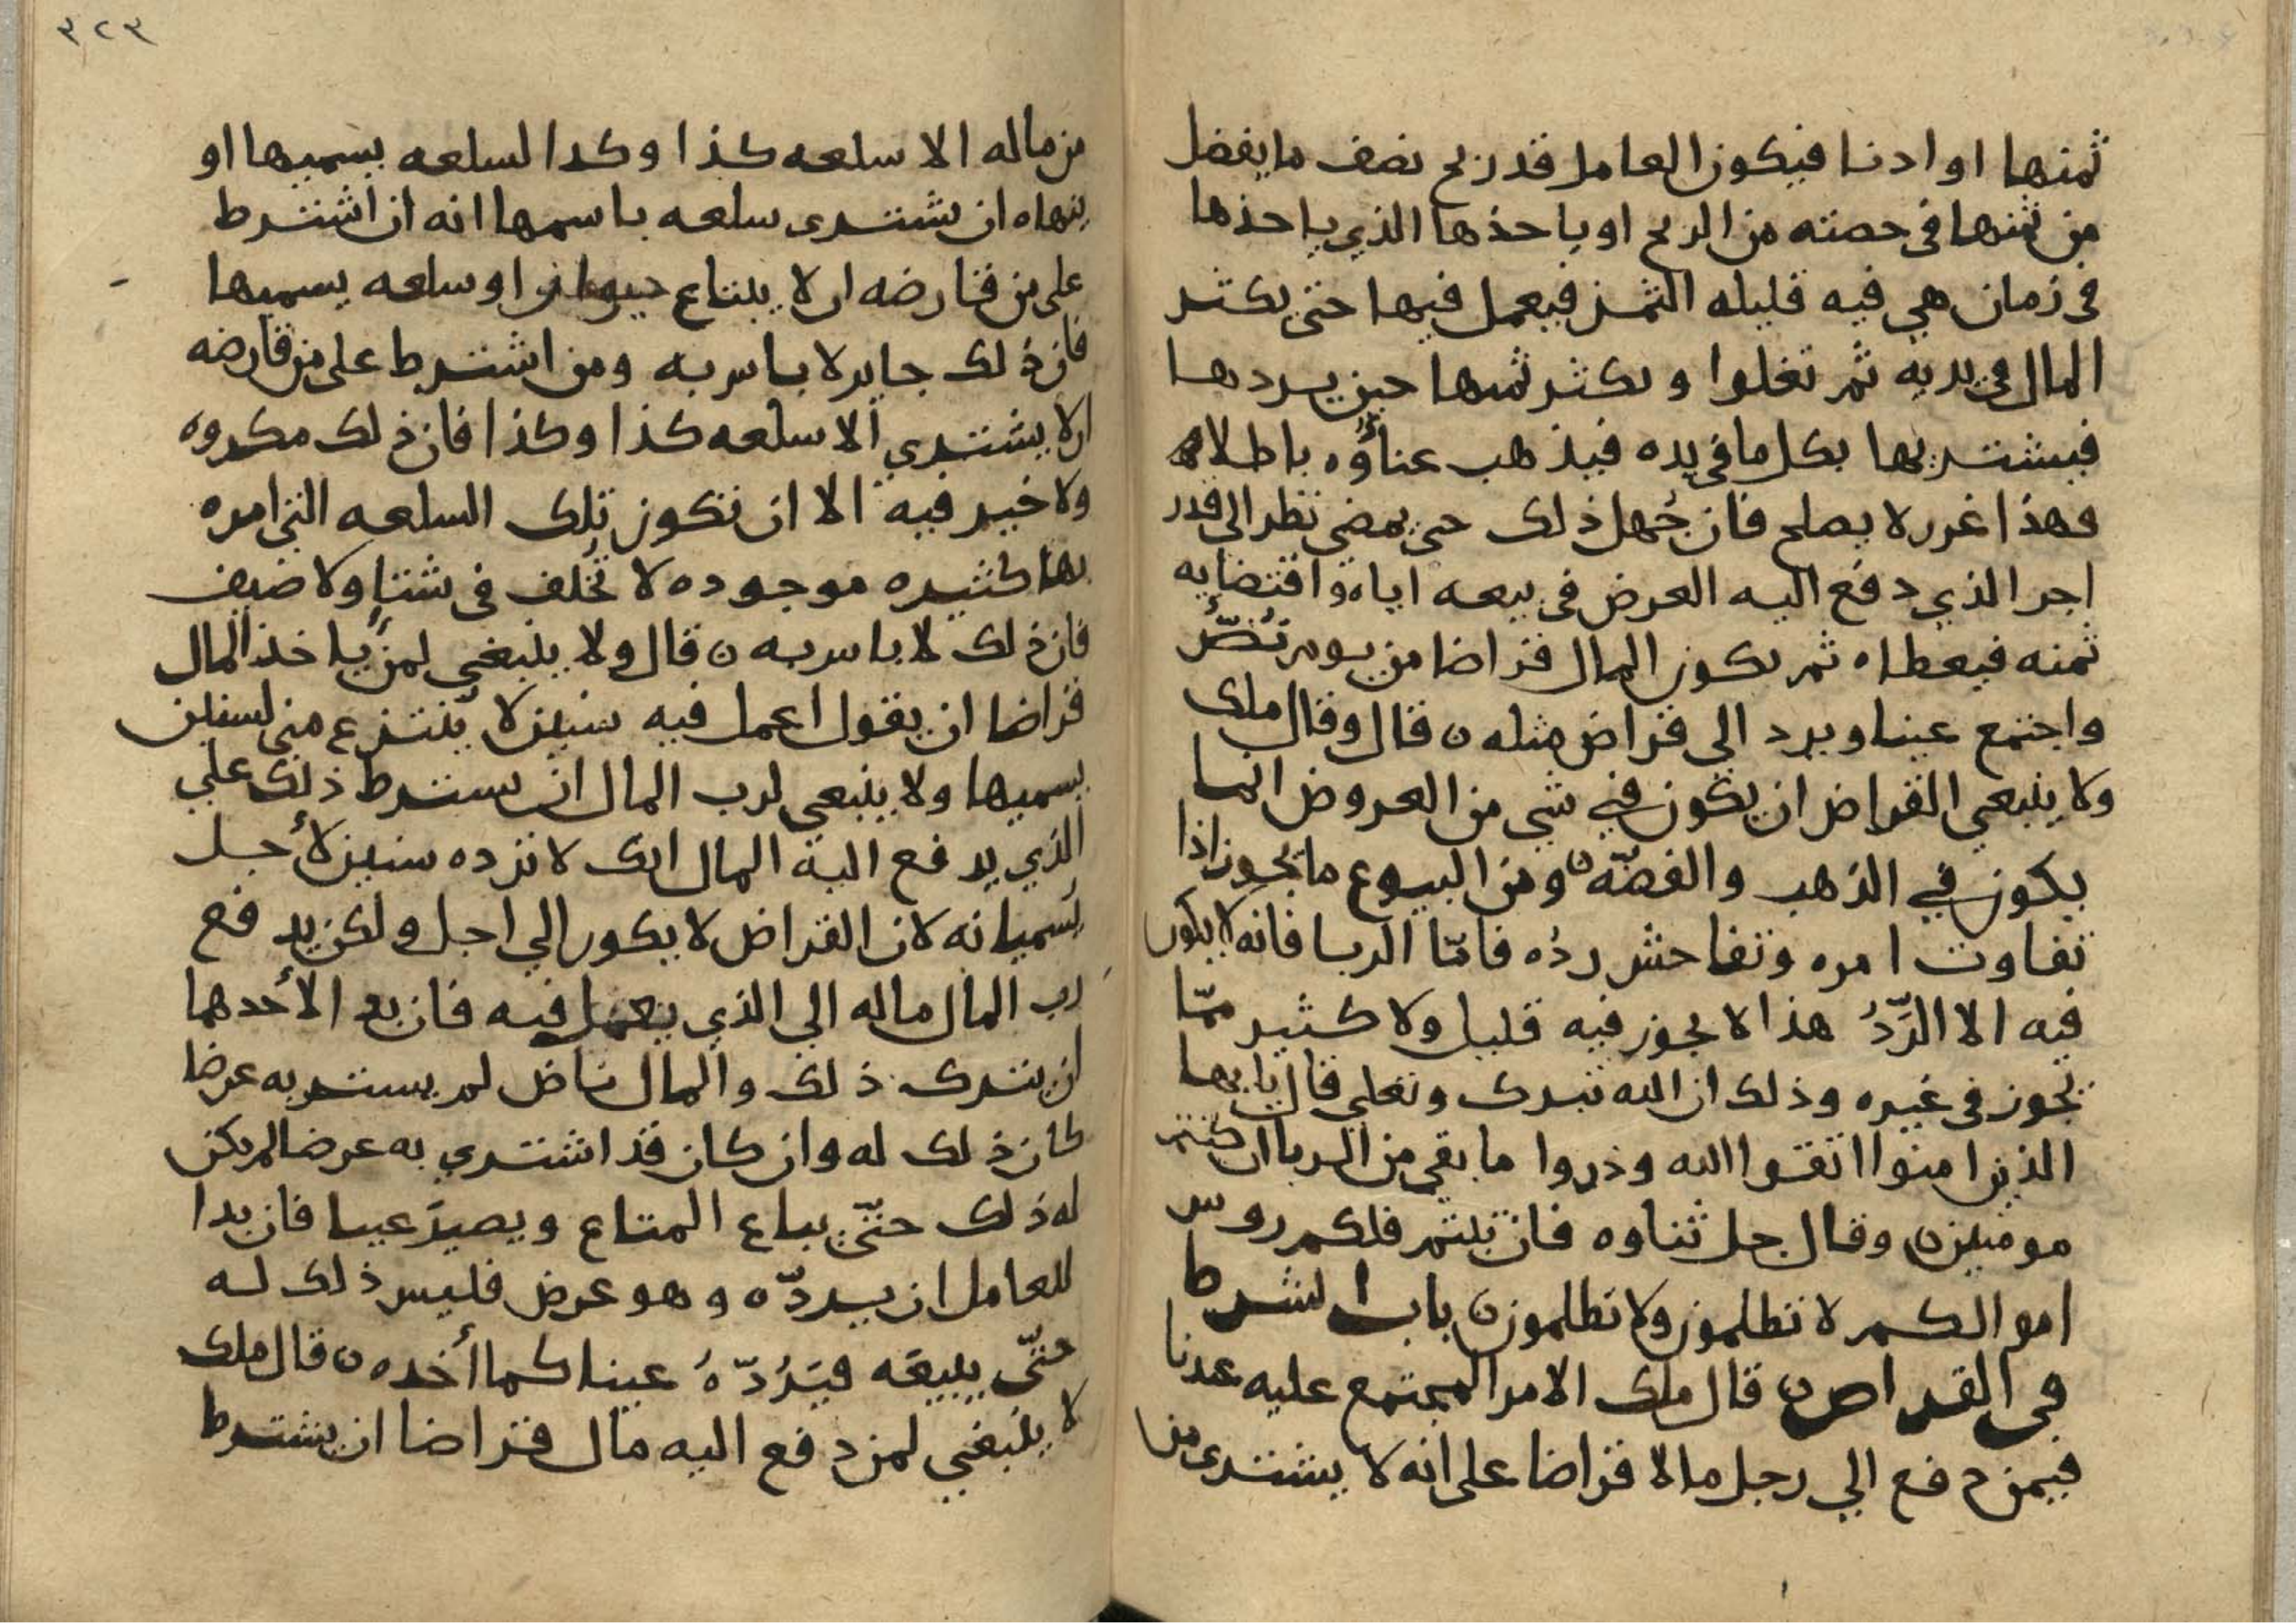 ثمنها او ادنا فيكون العامل قد ربح نصف ما يفضل
من ثمنها فى حصته من الربح او ياخذها الذي ياخذها
فى زمان هي فيه قليله الثمن فيعمل فيها حتى يكثر
المال فى يديه ثم تغلوا ويكثر ثمنها حين يردها
فيشتريها بكل ما فى يده فيذهب عناؤه باطلا
فهذا غرر لا يصلح فان جُهل ذلك حتى يمضي نظر الى قدر
اجر الذي دفع اليه العرض فى بيعه اياه واقتضايه
ثمنه فيعطاه ثم يكون المال قراضا من يوم نُضَّ
واجتمع عينا ويرد الي قراض مثله ه قال وقال ملك
ولا ينبغي القراض ان يكون في شي من العروض انما
يكون في الذهب والفضّه ه ومن البيوع ما يجوز اذا
تفاوت امره وتفاحش ردُه فامّا الربا فانه لا يكون
فيه الا الرَّدُ هذا لا يجوز فيه قليل ولا كثير ممّا
يجوز فى غيره وذلك ان الله تبرك وتعلي قال يا يها
الذين امنوا اتقوا الله وذروا ما بقي من الربا ان كنتم
مومنين ه وقال جل ثناوه فان تبتم فلكم روس
اموالكم لا تظلمون ولا تظلمون ه باب الشرط
فى القراض ه قال ملك الامر المجتمع عليه عندنا
فيمن دفع الي رجل مالا قراضا على انه لا يشترى من
٣٢٣
من ماله الا سلعه كذا وكدا لسلعه يسميها او
ينهاه ان يشترى سلعه باسمها انه ان اشترط
على من قارضه ان لا يبتاع حيوانا او سلعه يسميها
فان ذلك جايز لا باس به ومن اشترط على من قارضه
ان لا يشتري الا سلعه كذا وكذا فان ذلك مكروه
ولا خير فيه الا ان تكون تلك السلعه التى امره
بها كثيره موجوده لا تُخلف فى شتاٍ ولا صيف
فان ذلك لا باس به ه قال ولا ينبغي لمن ياخذ المال
قراضا ان يقول اعمل فيه سنين لا ينتزع مني لسنين
يسميها ولا ينبغي لرب المال ان يشترط ذلك على
الذي يدفع اليه المال انك لا ترده سنين لأجل
يسميانه لان القراض لا يكون الي اجل ولكن يدفع
رب المال ماله الي الذي يعمل فيه فان بدا لأحدهما
ان يترك ذلك والمال ناض لم يشتر به عرضا
كان ذلك له وان كان قد اشتري به عرضا لم يكن
له ذلك حتّي يباع المتاع ويصير عينا فان بدا
للعامل ان يردّه وهو عرض فليس ذلك له
حتّى يبيعَه فيَرُدّهُ عينا كما أخده ه قال ملك
لا ينبغي لمن دفع اليه مال قراضا ان يشترط